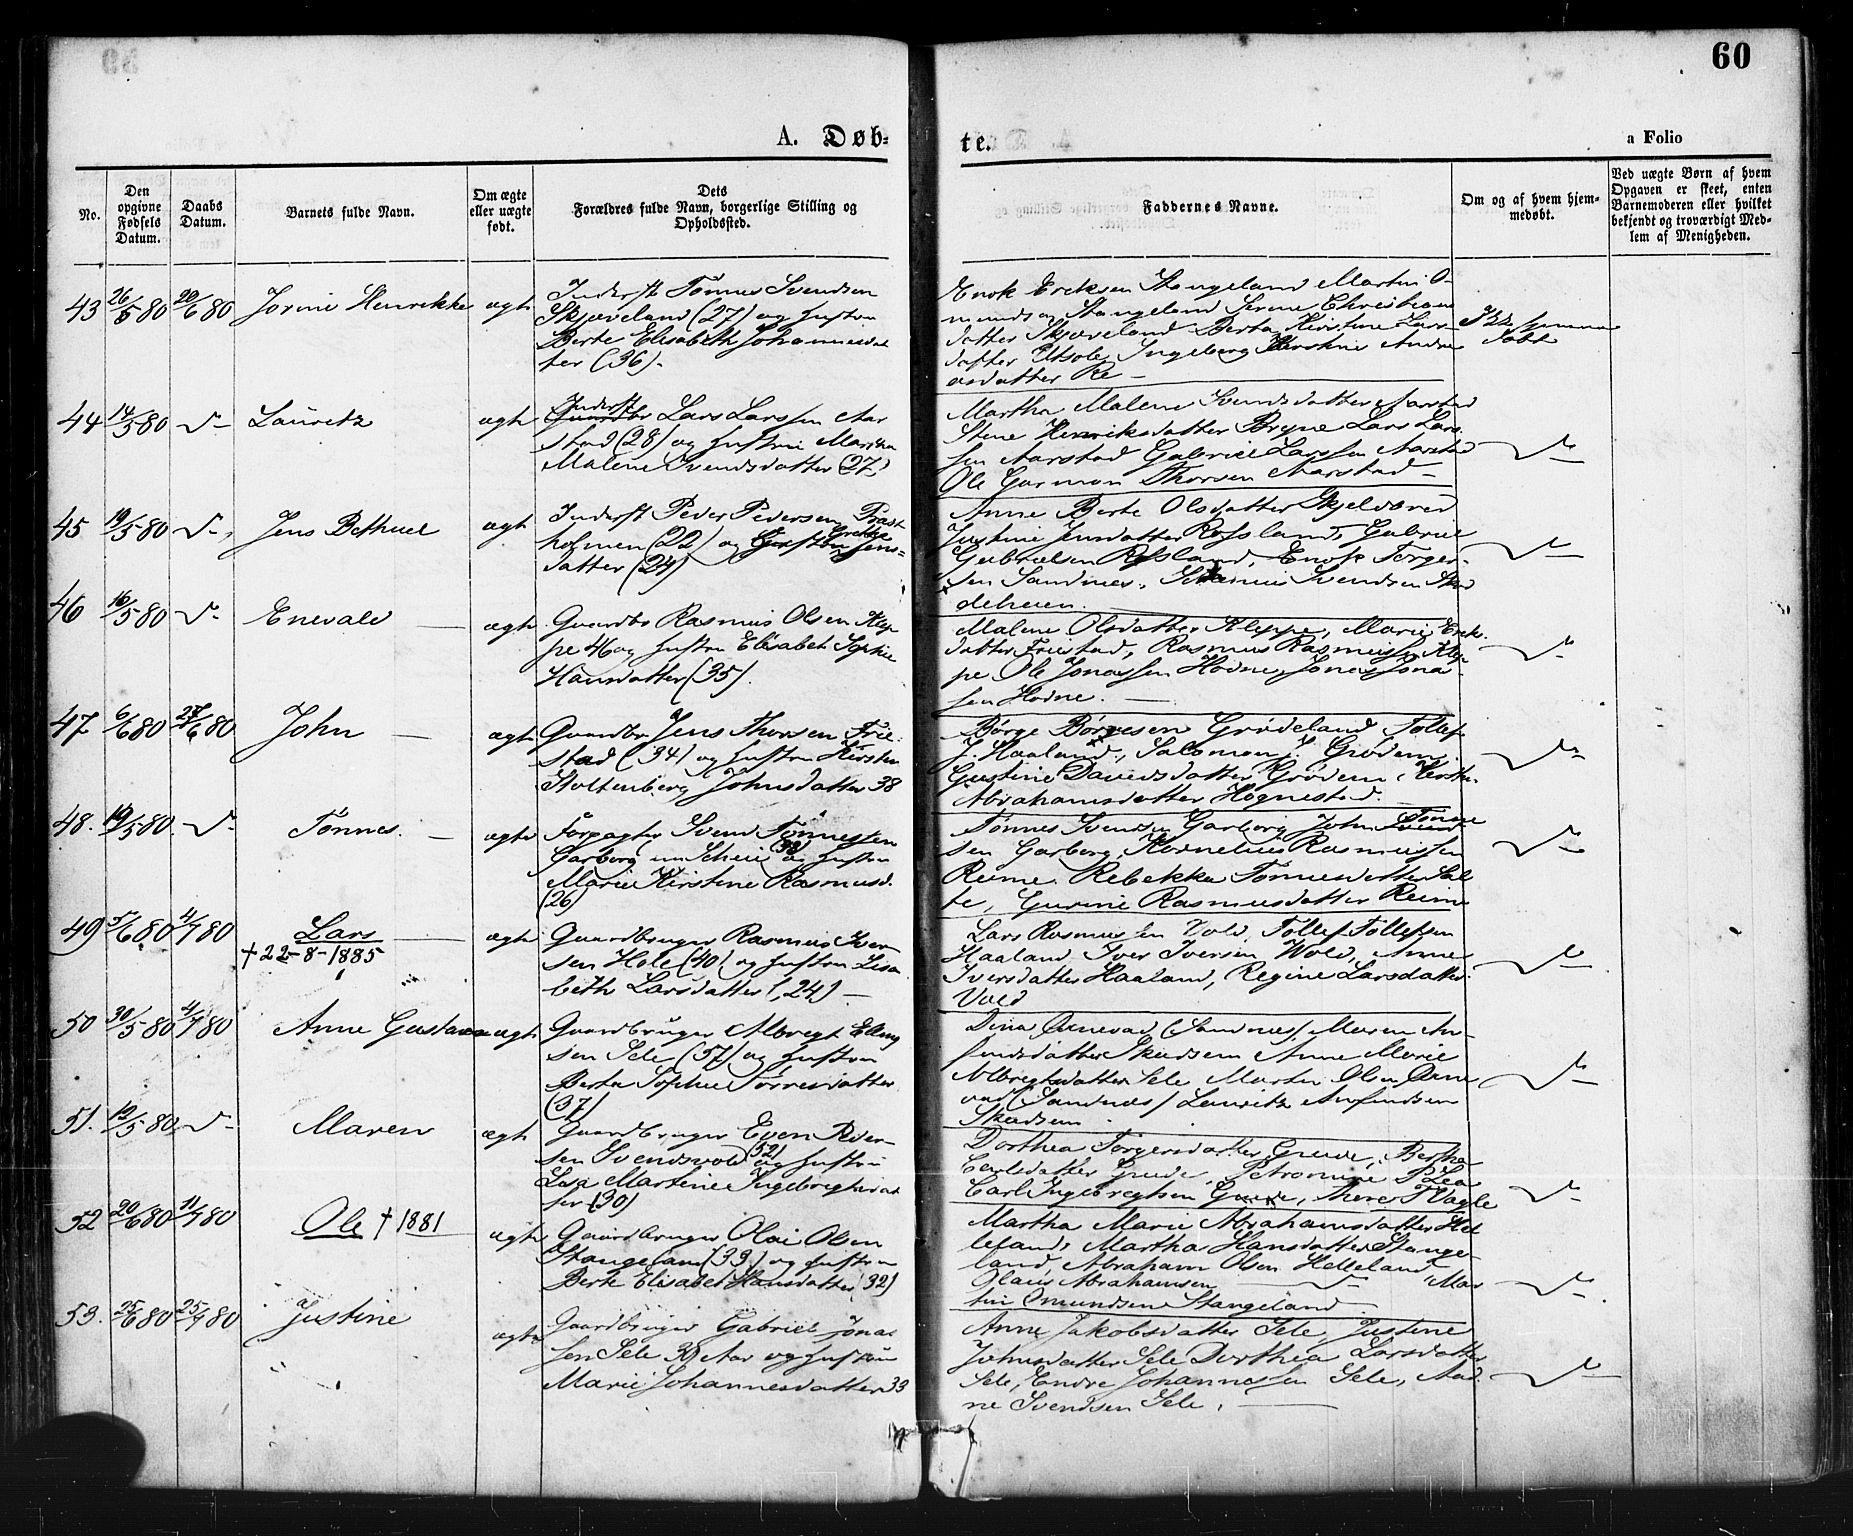 60
A. Døb-
te.
a Folio
No.
Den opgivne Fødsels Datum.
Daabs Datum.
Barnets fulde Navn.
Om ægte eller uægte født.
Dets Forældres fulde Navn, borgerlige Stilling og Opholdssted.
Faddernes Navne.
Om og af hvem hjemmedøbt.
Ved uægte Børn af hvem Opgaven er skeet, enten Barnemoderen eller hvilket bekjendt og troværdigt Medlem af Menigheden.
43 26/5 80 20/6 80 Jorine Henrikke ægte
Inderst Tønnes Svendsen
Skjæveland (27) og Hustru
Berte Elisabeth Johannesdat
ter (36).
Enok Eriksen Stangeland Martin O-
mundsen Stangeland Serine Christians
datter Skjæveland Berta Kirstine Lars-
datter Utsola, Ingeborg Kirstine Andre
asdatter Re
Ikke hjemme
døbt
44 14/5 80 Lauritz ægte
Inderst Lars Larssen Aar
stad (28) og Hustru Martha
Malene Svendsdatter (27)
Martha Malene Svendsdatter Aarstad
Stene Henriksdatter Bryne Lars Lars
sen Aarstad Gabriel Larssen Aarstad
Ole Garman Thorsen Aarstad
45 19/5 80 Jens Bethuel ægt
Inderst Peder Pedersen Præst
holmen (22) og Grethe Jens-
datter (24)
Anne Berte Olsdatter Skjelvared
Justine Jensdatter Rossland, Gabriel
Gabrielsen Rossland, Enok Torger-
sen Sandnes, Svendsen
46 16/5 80 Enevald ægte
Gaardbr Rasmus Olsen Klep
pe 46 og Hustru Elisabet Sophie
Hansdatter (35).
Malene Olsdatter Kleppe, Marie Erik-
datter Friestad, Rasmus Rasmussen Klep-
pe Ole Jonassen Hodne, Jonas Jona
sen Hodne.
47 6/6 80 27/6 80 John ægte
Gaardbr Jens Thorsen Frie
stad (34) og Hustru Kirsten
Stoltenberg Johnsdatter 38
Børge Børgesen Grødeland Tollef
J. Haaland, Salomon J. Grødem
Gustine Davidsdatter Grødem,
Abrahamsdatter Hognestad.
48. 19/5 80 Tønnes. ægte
Forpagter Svend Tønnessen
Garborg (33) og Hustru
Marie Kirstine Rasmusd.
(26)
Tønnes Svendsen Garborg John Tønne
sen Garborg, Kornelius Rasmussen
Reime Rebekka Tønnesdatter Sal
te, Gurine Rasmusdatter Reime
49 5/6 80 4/7 80 Lars ægte
† 22-8-1885
Gaardbruger Rasmus Iver
sen Hole (40) og Hustru Lisa
beth Larsdatter (24)
Lars Rasmussen Vold, Tollef Tollefsen
Haaland Iver Iversen Wold, Anne
Iversdatter Haaland, Regine Larsdatter
Vold
50 30/5 80 4/7 80 Anne Gustava ægte
Gaardbruger Albregt Elling
sen Sele (57) og Hustru
Berta Sophie Torresdatter
(37)
Dina Ornevad (Sandnes) Maren An-
findsdatter Skadsem Anne Marie
Albregtsdatter Sele Martin Olsen Orne
vad (Sandnes) Lauritz Anfindsen
Skadsem
51. 19/5 80 Maren ægte
Gaardbruger Even Peder-
sen Svendsvold (32) og Hustru
Lisa Martine Ingebregtsdat
ter (30)
Dorthea Torgersdatter Grude, Bertha
Carlsdatter Grude, Petronine P Lea
Carl Ingebregtsen Grude, T Vagle
52 20/6 80 11/7 80 Ole † 1881 ægte
Gaardbruger Olai Olsen
Stangeland (33) og Hustru
Berte Elisabet Hansdatter (32)
Martha Marie Abrahamsdatter Hel
leland, Martha Hansdatter Stange-
land, Abraham Olsen Helleland
Olaus Abrahamsen Mar
tin Omundsen Stangeland
53. 25/6 80 25/7 80 Justine ægte
Gaardbruger Gabriel Jonas
sen Sele Aar og Hustru
Marie Johannesdatter 33
Anne Jakobsdatter Sele, Justine
Johnsdatter Sele Dorthea Larsdatter
Sele, Endre Johannessen Sele, Aad
ne Svendsen Sele.